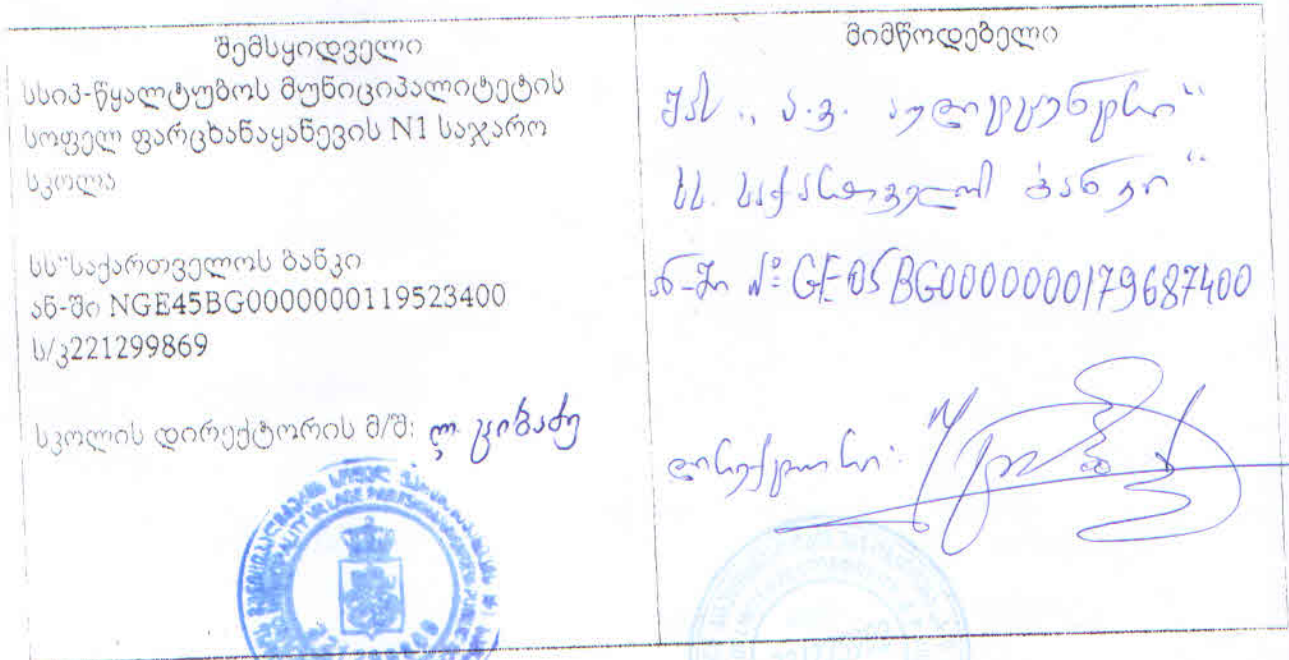 შემსყიდველი
სსიპ-წყალტუბოს მუნიციპალიტეტის
სოფელ ფარცხანაყანევის N1 საჯარო
სკოლა
სს"საქართველოს ბანკი
ან-ში NGE45BG0000000119523400
ს/კ221299869
სკოლის დირექტორის მ/შ: ლ.
მიმწოდებელი
შპს „ ა.გ. აუდიტცენტრი“
სს. საქართველოს ბანკი“
ან-ში № GE05BG0000000179687400
დირექტორი: